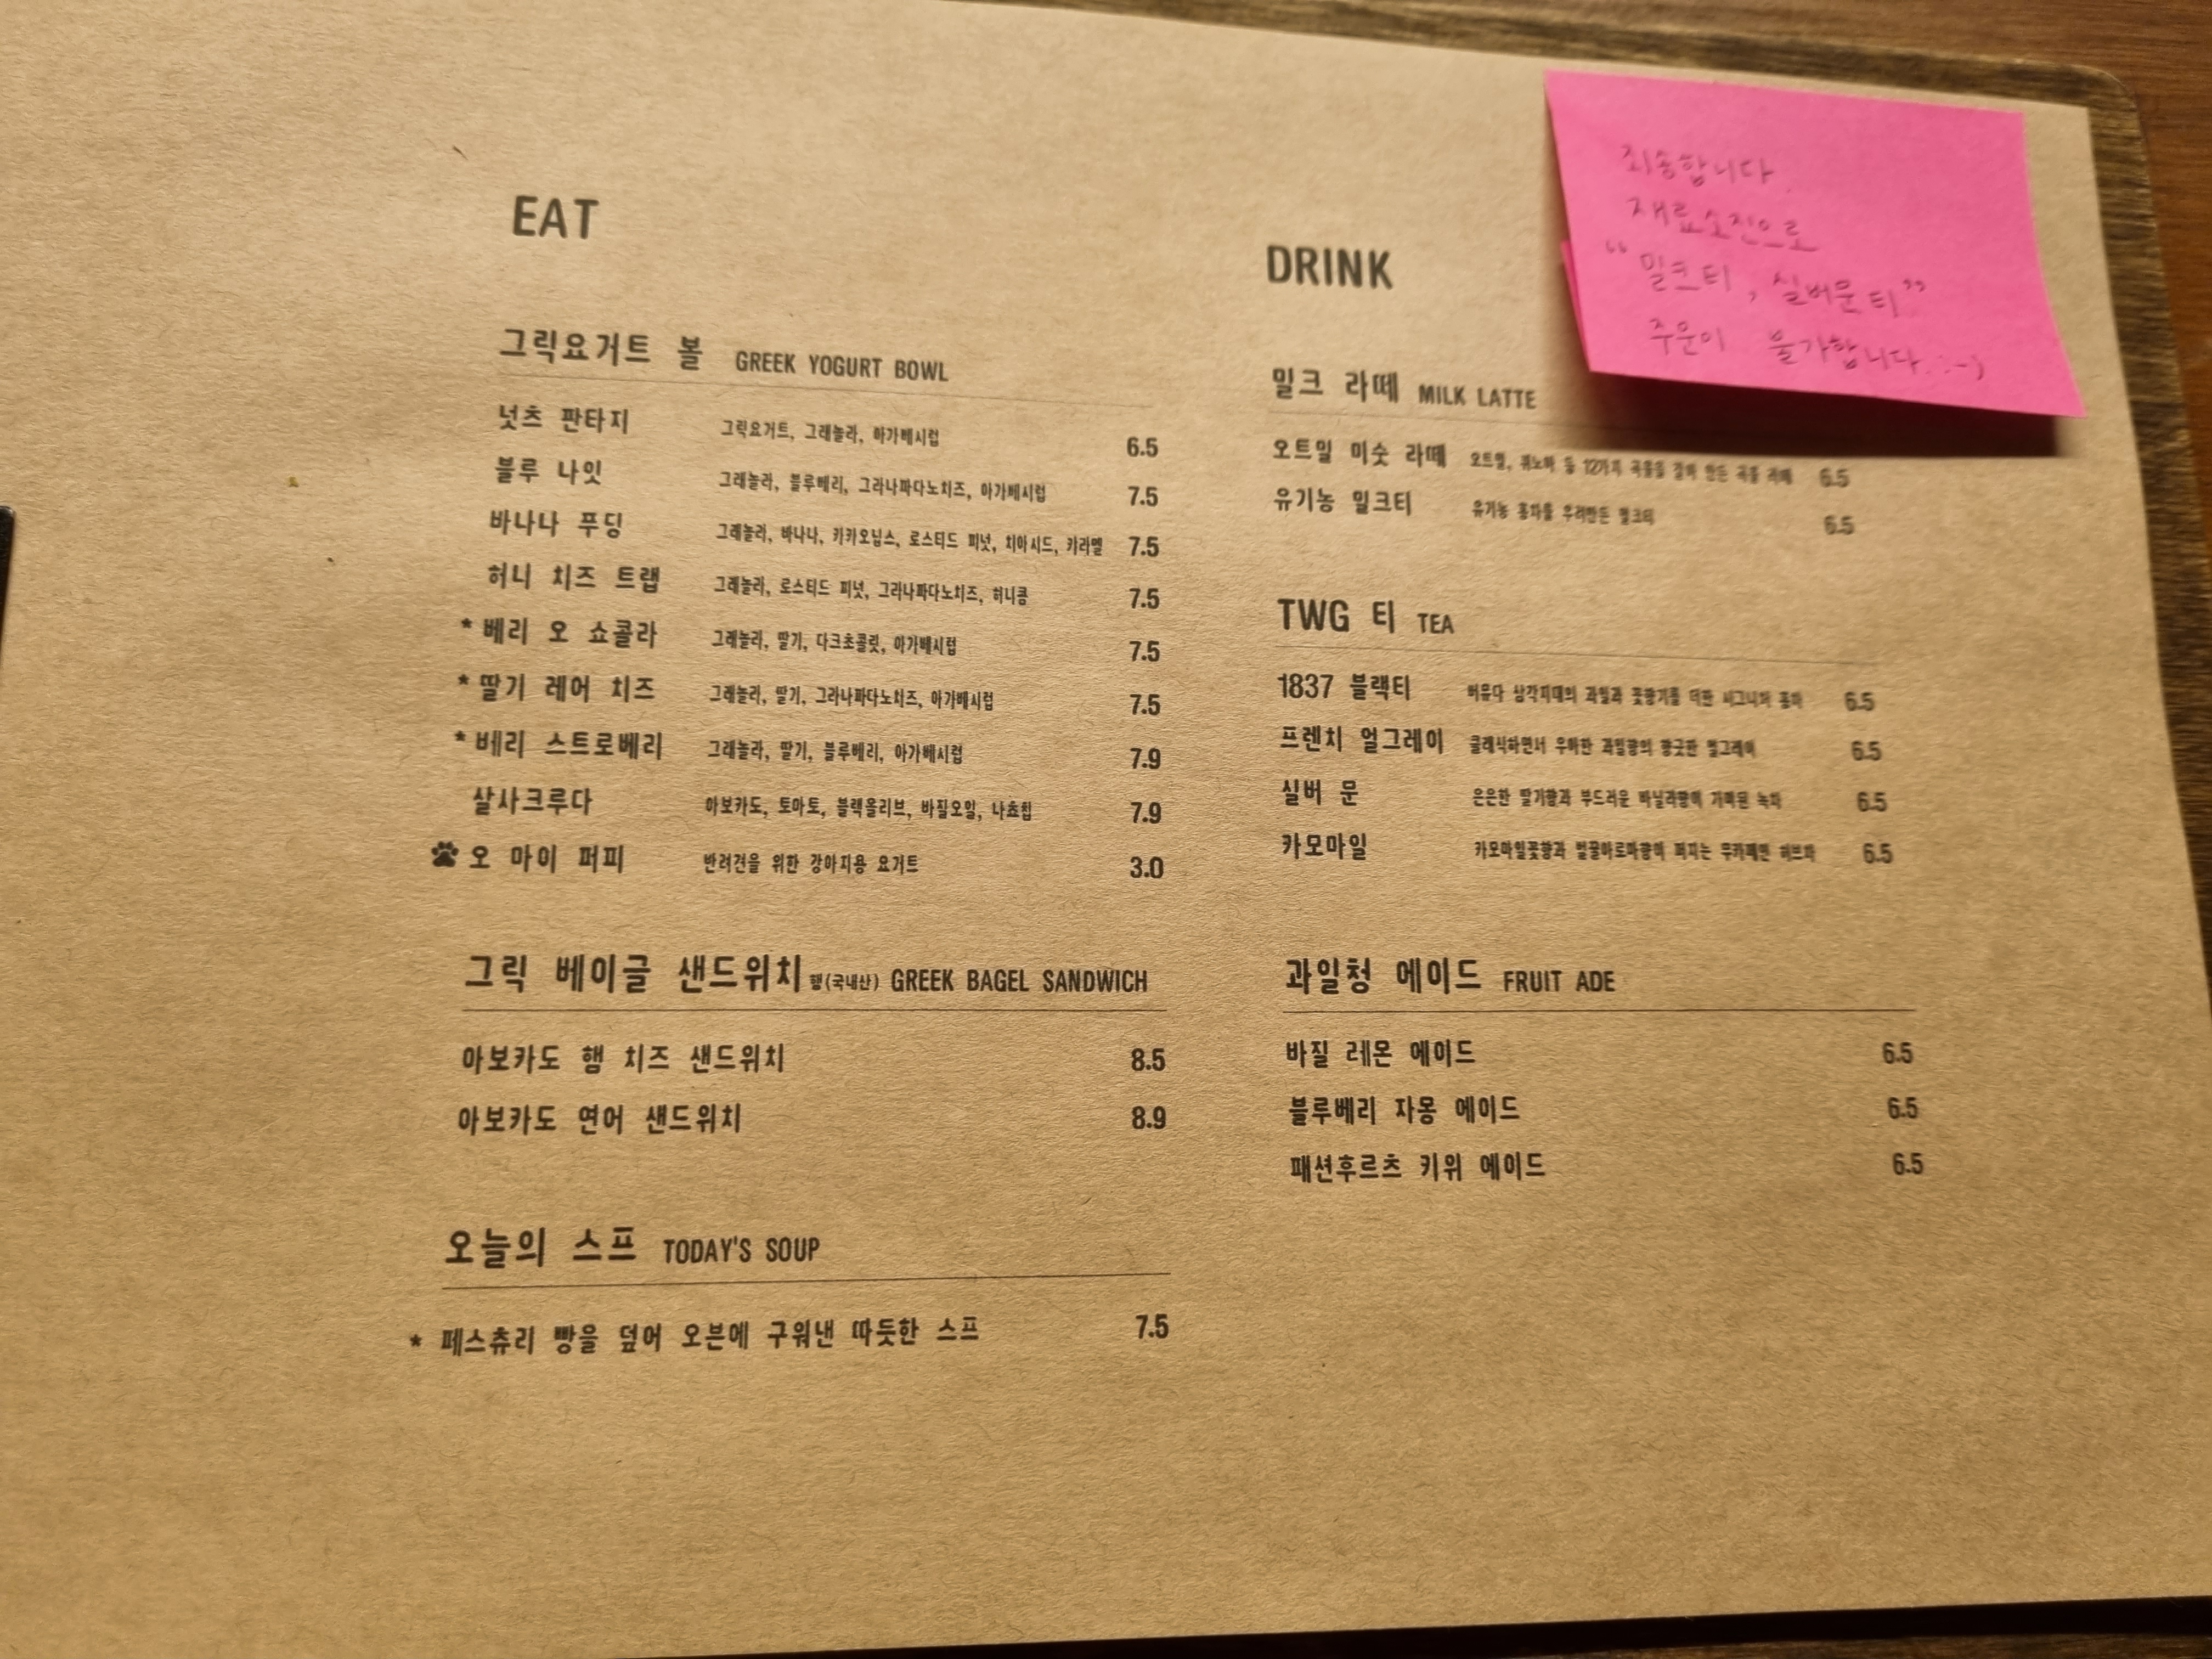 EAT
그릭요거트 볼 GREEK YOGURT BOWL
넛츠 판타지 그릭요거트, 그래놀라, 아가베시럽 6.5
블루 나잇 그래놀라, 블루베리, 그라나파다노치즈, 아가베시럽 7.5
바나나 푸딩 그래놀라, 바나나, 카카오닙스, 로스티드 피넛, 치아시드, 카라멜 7.5
허니 치즈 트랩 그래놀라, 로스티드 피넛, 그라나파다노치즈, 허니콤 7.5
* 베리 오 쇼콜라 그래놀라, 딸기, 다크초콜릿, 아가베시럽 7.5
* 딸기 레어 치즈 그래놀라, 딸기, 그라나파다노치즈, 아가베시럽 7.5
* 베리 스트로베리 그래놀라, 딸기, 블루베리, 아가베시럽 7.9
살사크루다 아보카도, 토마토, 블랙올리브, 바질오일, 나쵸칩 7.9
오 마이 퍼피 반려견을 위한 강아지용 요거트 3.0
그릭 베이글 샌드위치 햄(국내산) GREEK BAGEL SANDWICH
아보카도 햄 치즈 샌드위치 8.5
아보카도 연어 샌드위치 8.9
오늘의 스프 TODAY'S SOUP
* 페스츄리 빵을 덮어 오븐에 구워낸 따듯한 스프 7.5
죄송합니다.
재료소진으로
"밀크티, 실버문티"
주문이 불가합니다. :-)
DRINK
밀크 라떼 MILK LATTE
오트밀 미숫 라떼 오트밀, 퀴노아 등 12가지 곡물을 갈아 만든 곡물 라떼 6.5
유기농 밀크티 유기농 홍차를 우려만든 밀크티 6.5
TWG 티 TEA
1837 블랙티 버뮤다 삼각지대의 과일과 꽃향기를 더한 시그니처 홍차 6.5
프렌치 얼그레이 클래식하면서 우아한 과일향의 향긋한 얼그레이 6.5
실버 문 은은한 딸기향과 부드러운 바닐라향이 가미된 녹차 6.5
카모마일 카모마일꽃향과 벌꿀아로마향이 퍼지는 무카페인 허브차 6.5
과일청 에이드 FRUIT ADE
바질 레몬 에이드 6.5
블루베리 자몽 에이드 6.5
패션후르츠 키위 에이드 6.5